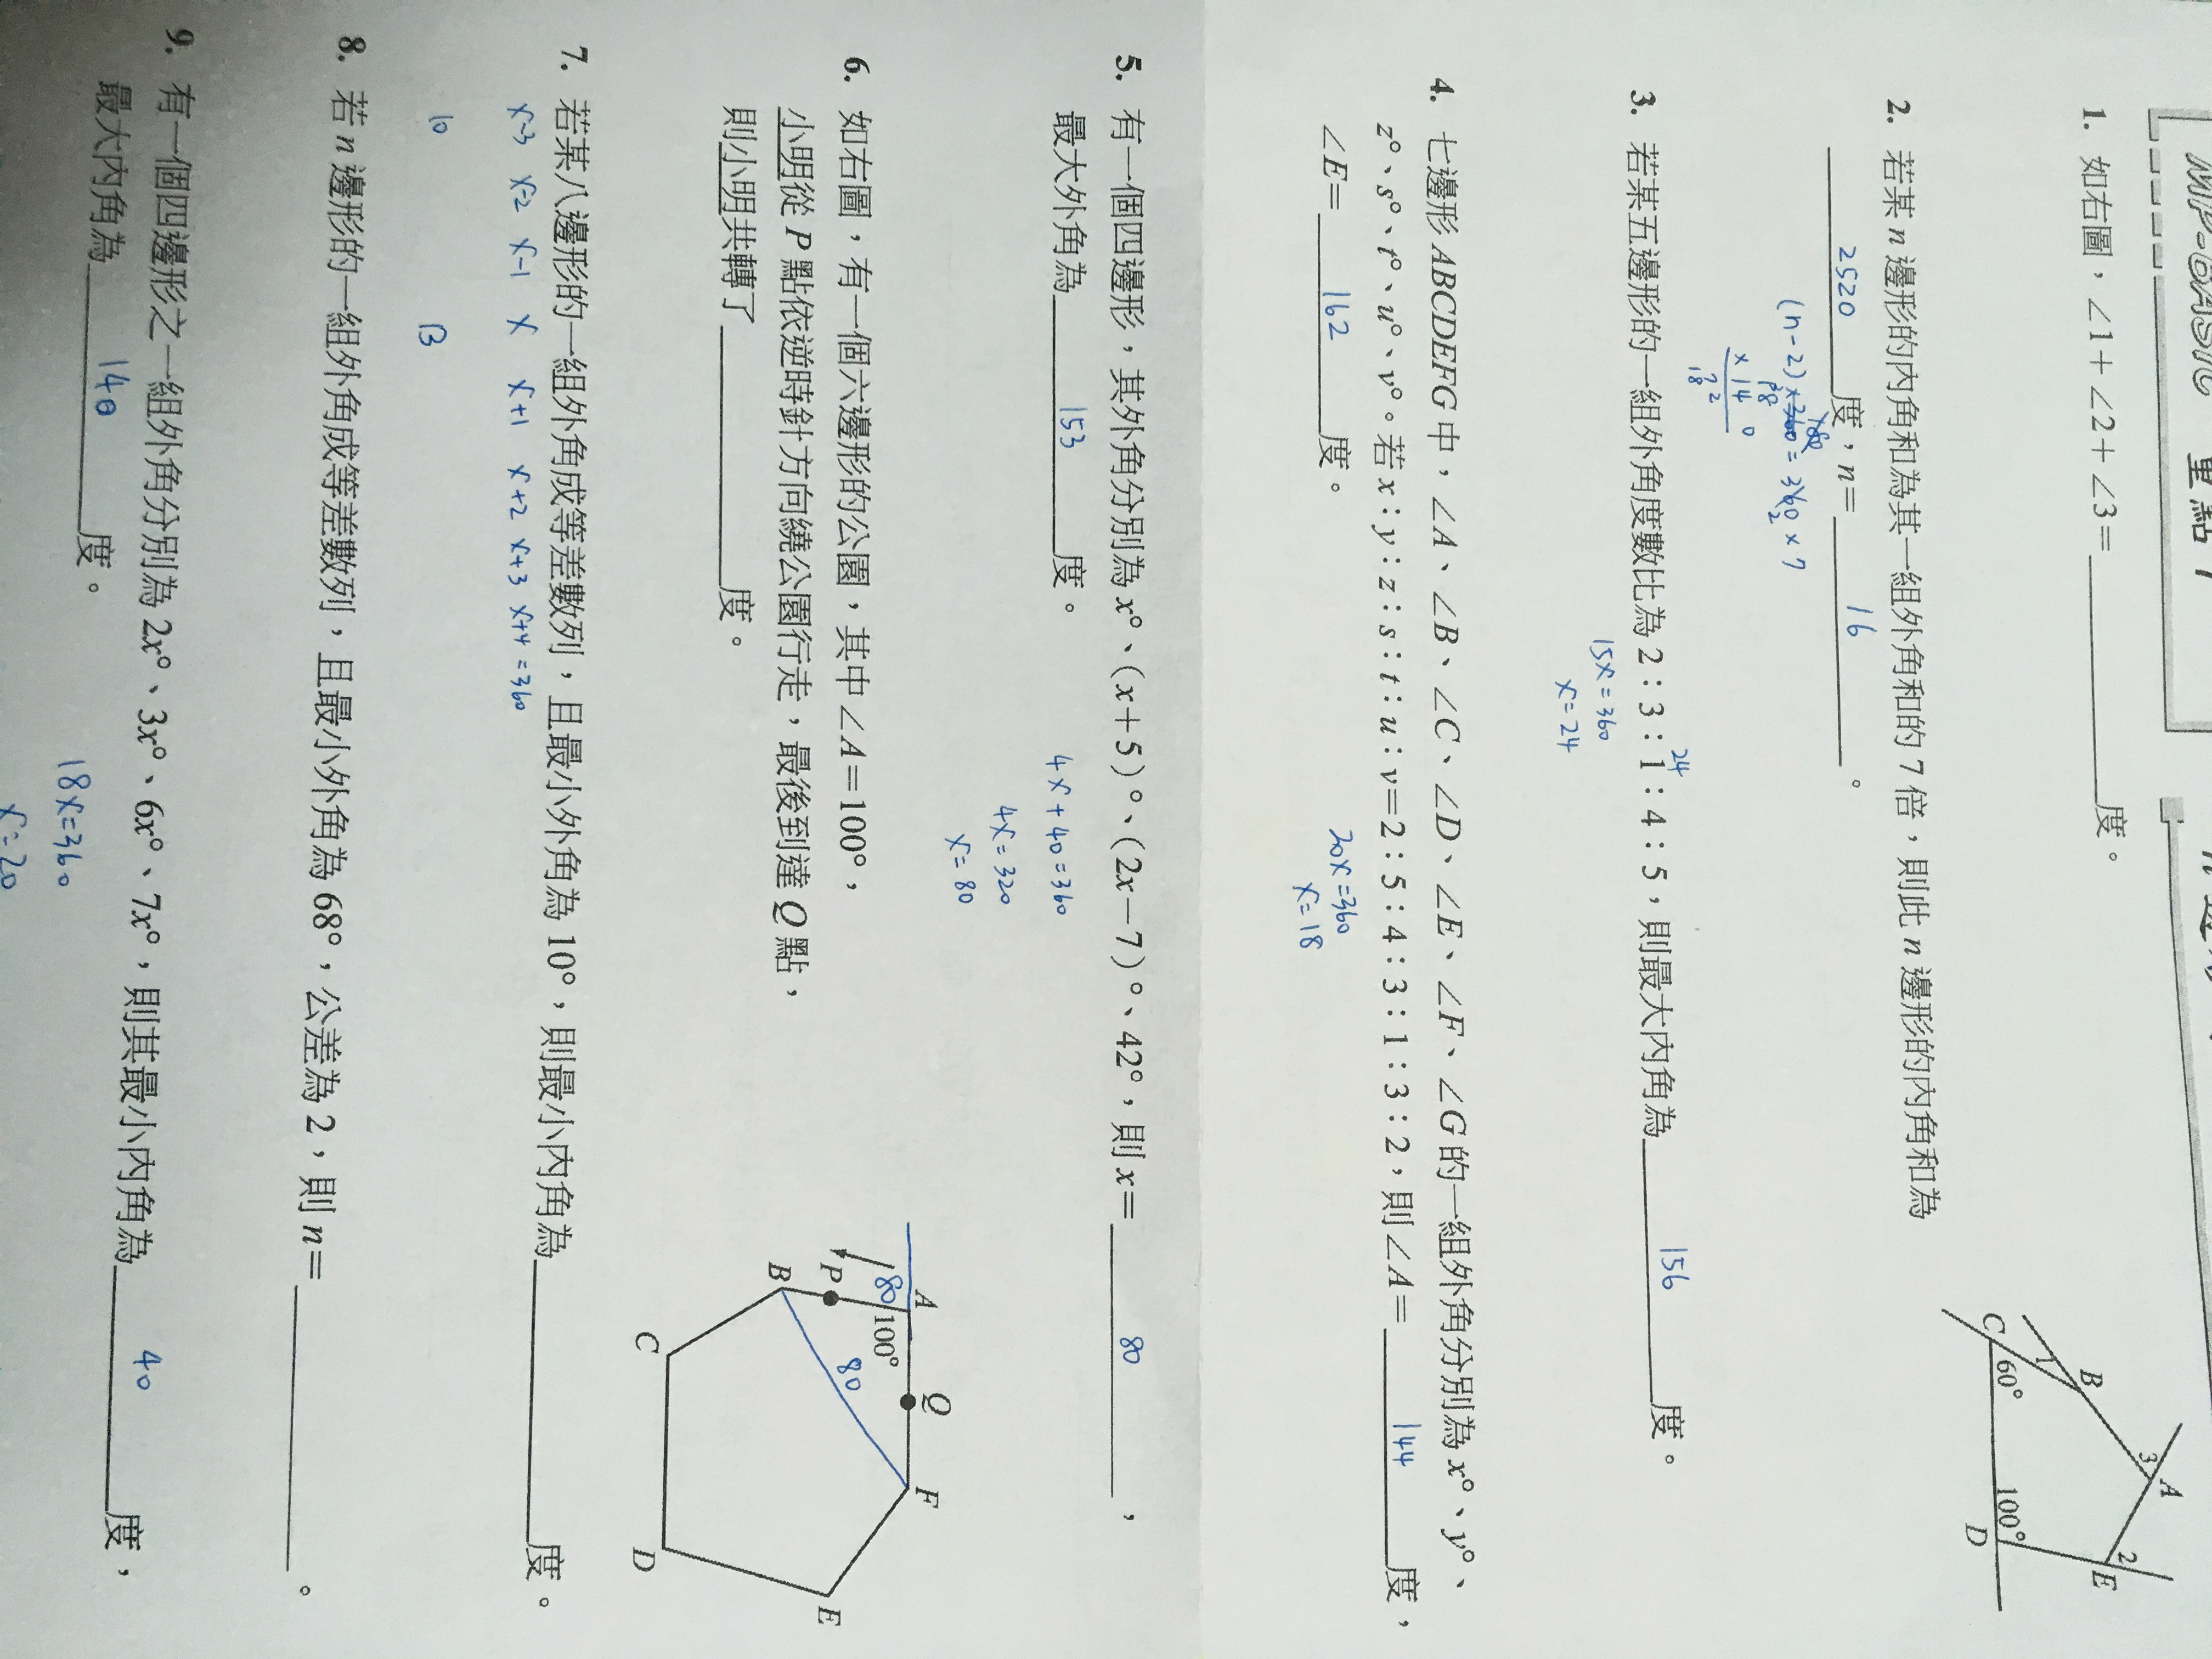 重點 1
1. 如右圖，∠1+∠2+∠3=________度。
A
B
C
D
E
1
2
3
60°
100°
2. 若某 n 邊形的內角和為其一組外角和的 7 倍，則此 n 邊形的內角和為
2520 度，n= 16 。
(n-2)×180=360×7
2
18
×14
72
18
0
3. 若某五邊形的一組外角度數比為 2：3：1：4：5，則最大內角為 156 度。
24
15x=360
x=24
4. 七邊形 ABCDEFG 中，∠A、∠B、∠C、∠D、∠E、∠F、∠G 的一組外角分別為 x°、y°、
z°、s°、t°、u°、v°。若 x：y：z：s：t：u：v=2：5：4：3：1：3：2，則∠A= 144 度，
∠E= 162 度。
20x=360
x=18
5. 有一個四邊形，其外角分別為 x°、(x+5)°、(2x−7)°、42°，則 x= 80 ，
最大外角為 153 度。
4x+40=360
4x=320
x=80
6. 如右圖，有一個六邊形的公園，其中∠A=100°，
小明從 P 點依逆時針方向繞公園行走，最後到達 Q 點，
則小明共轉了________度。
A
Q
F
80
100°
P
B
80
C
D
E
7. 若某八邊形的一組外角成等差數列，且最小外角為 10°，則最小內角為________度。
x-3 x-2 x-1 x x+1 x+2 x+3 x+4=360
10 13
8. 若 n 邊形的一組外角成等差數列，且最小外角為 68°，公差為 2，則 n=________。
9. 有一個四邊形之一組外角分別為 2x°、3x°、6x°、7x°，則其最小內角為 40 度，
最大內角為 140 度。
18x=360
x=20